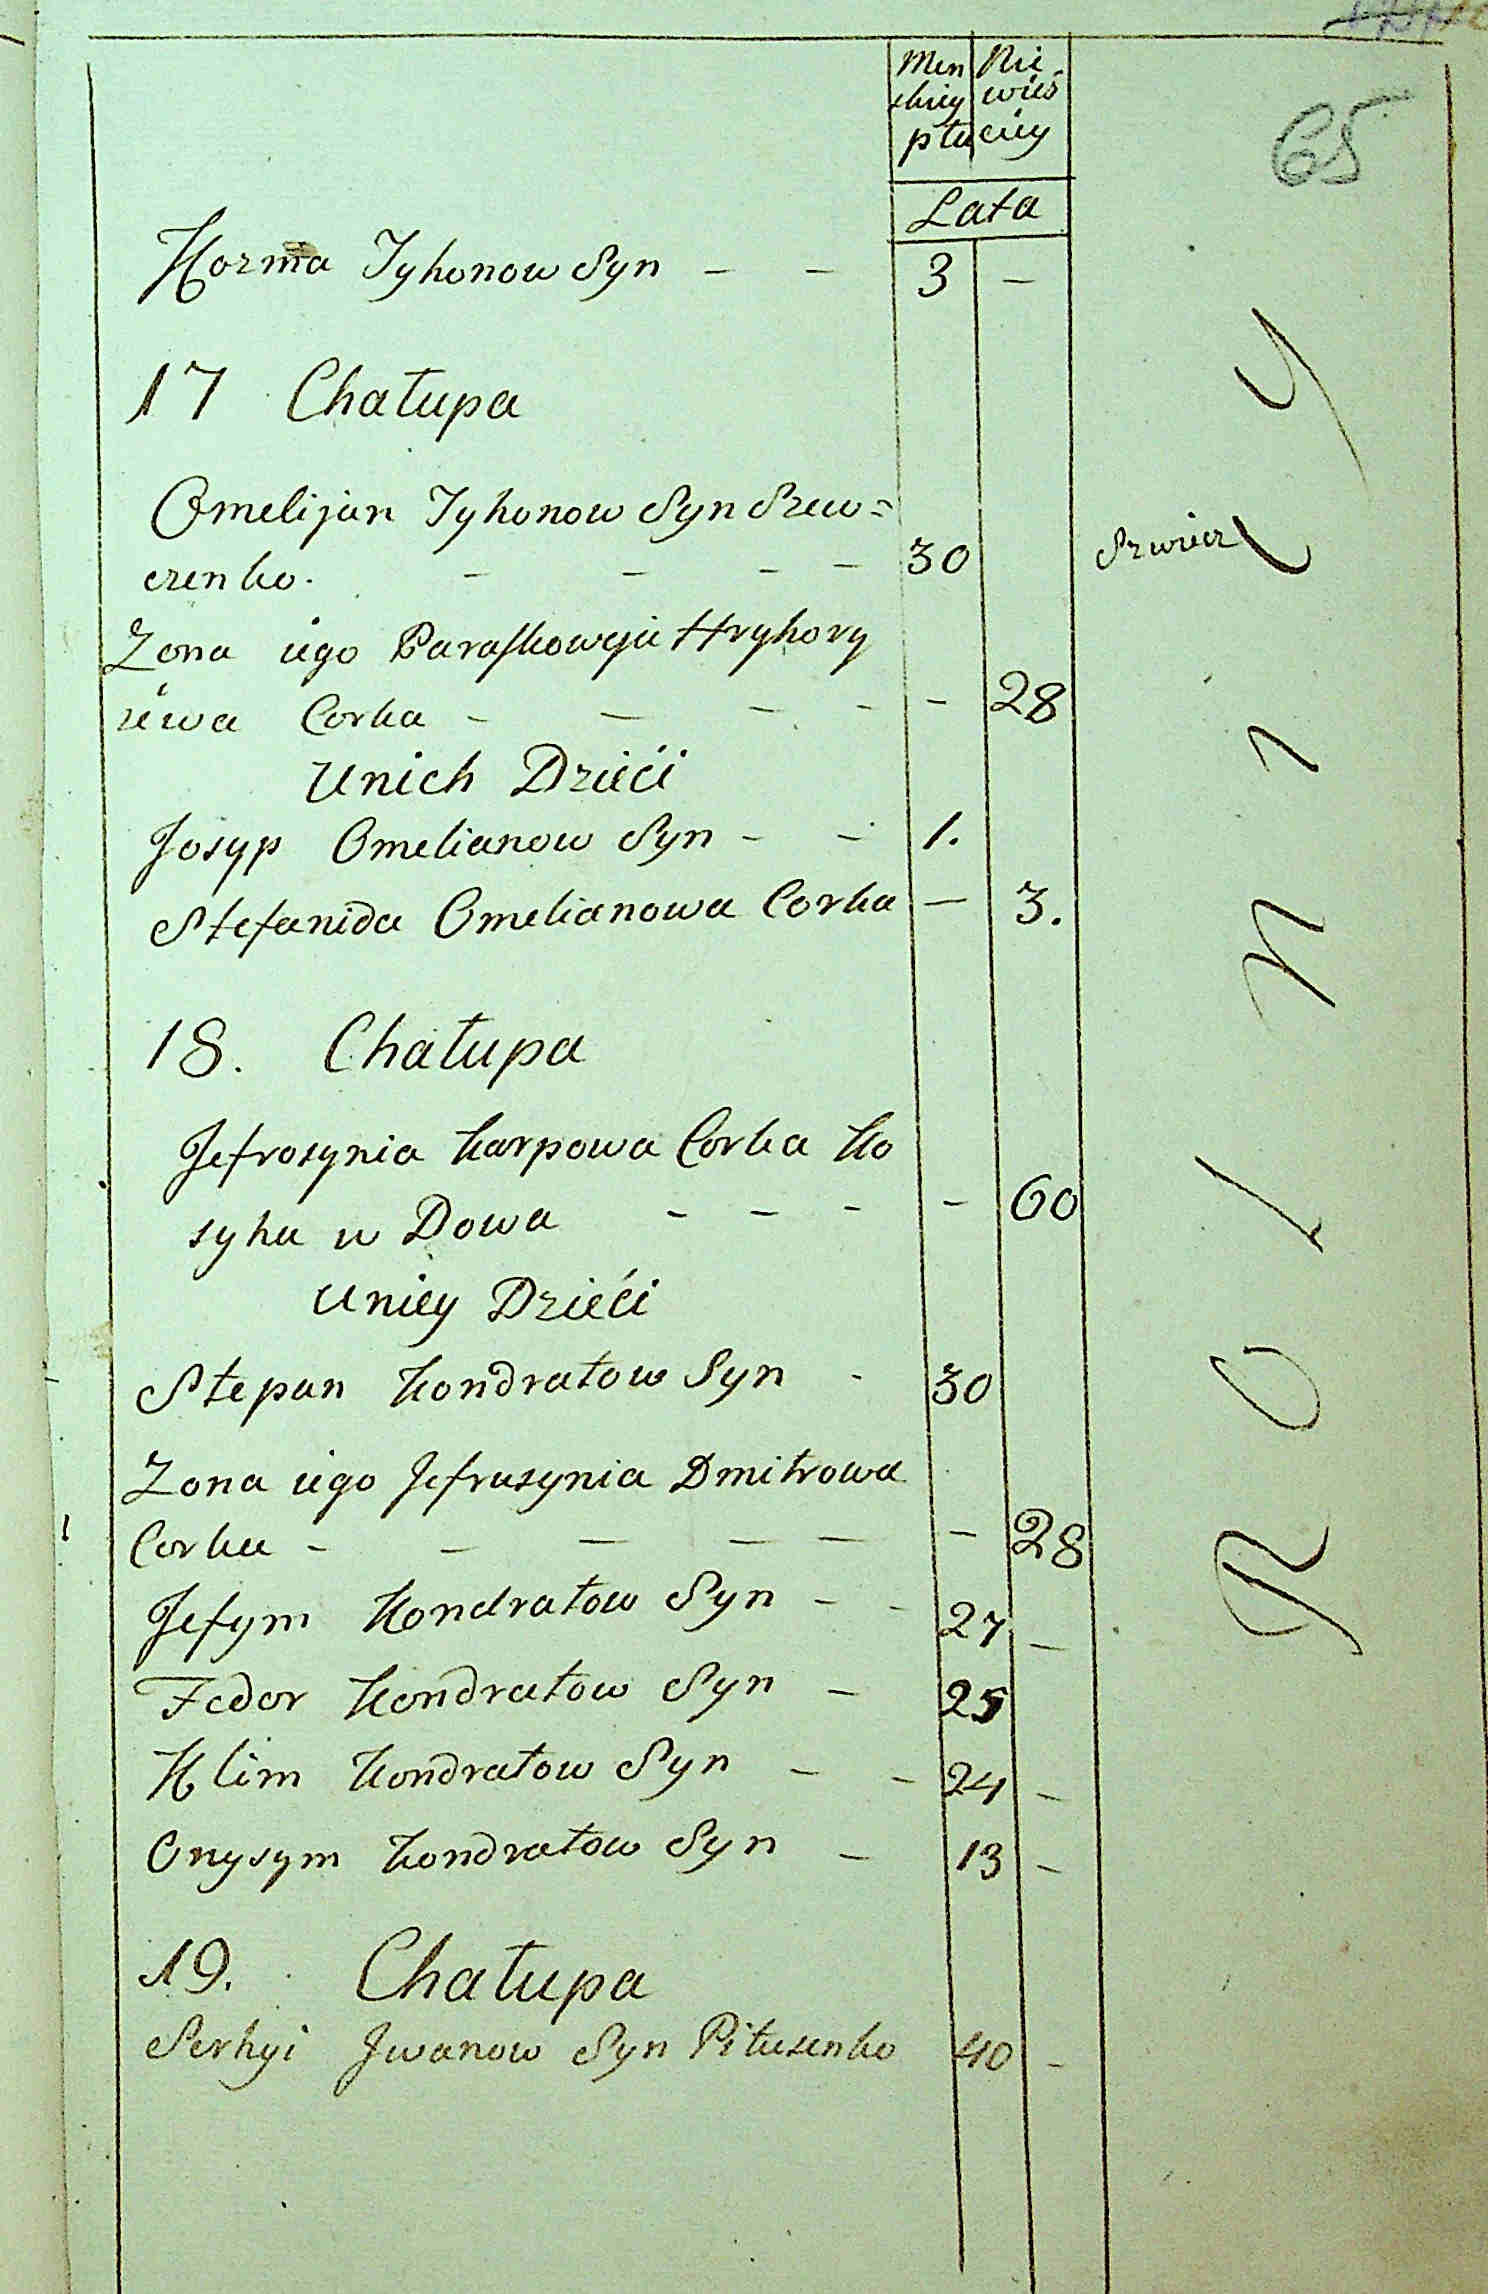 Men Nie
skiey wieś
płu ciey
65
Lata
Kozma Tyhonow Syn - - 3 -
17 Chałupa
Omelijan Tyhonow Syn Szew=
czenko. - - - - 30 Szwiec
Zona iego Paraskowyia Hryhory
iewa Corka - - - - - 28
U nich Dzieći
Josyp Omelianow Syn - - 1.
Stefanida Omelianowa Corka - 3.
18. Chałupa
Jefrosynia Karpowa Corka Ko
syka w Dowa - - - - 60
U niey Dzieći
Stepan Kondratow Syn - 30
Zona iego Jefrusynia Dmitrowa
Corka - - - - - - 28
Jefym Kondratow Syn - - 27 -
Fedor Kondratow Syn - 25
Klim Kondratow Syn - - 24 -
Onysym Kondratow Syn - 13 -
19. Chałupa
Serhyi Jwanow Syn Pitusenko 40 -
ROLNIY